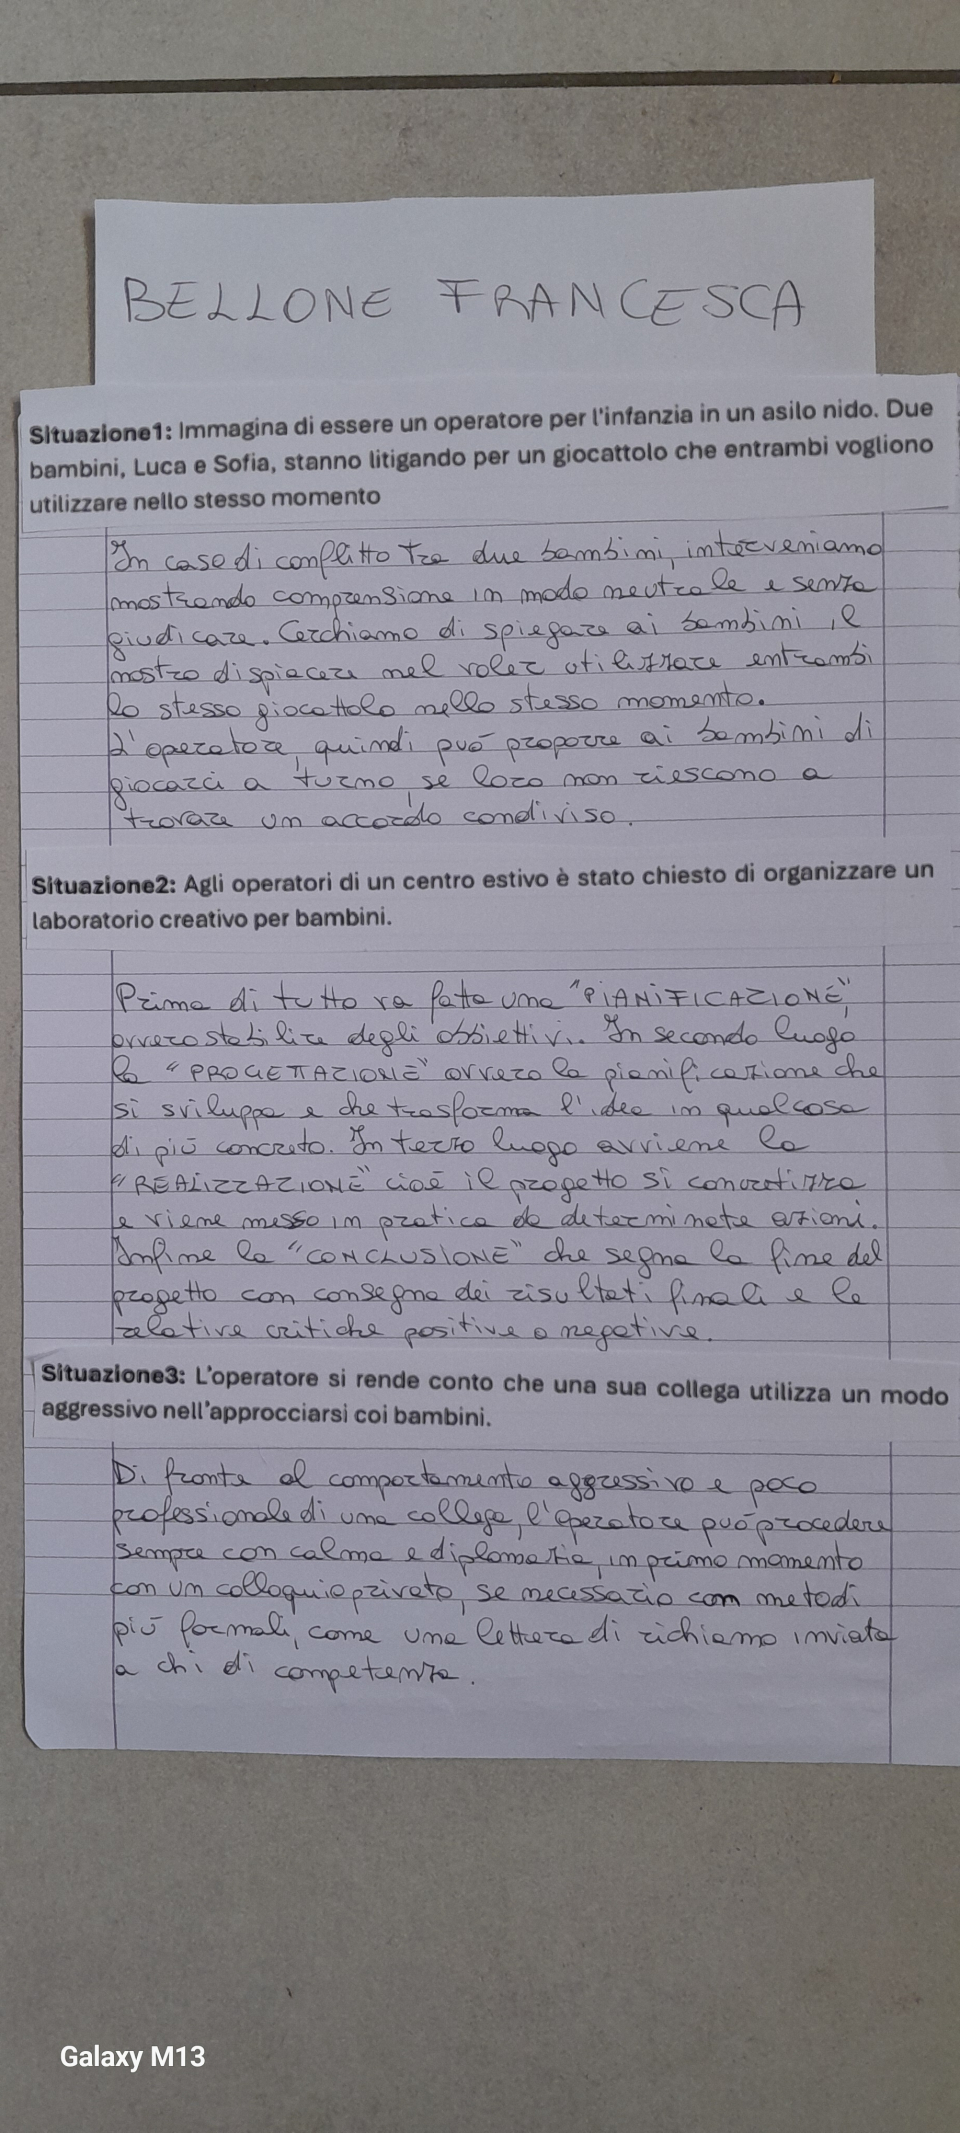 BELLONE FRANCESCA
Situazione1: Immagina di essere un operatore per l'infanzia in un asilo nido. Due
bambini, Luca e Sofia, stanno litigando per un giocattolo che entrambi vogliono
utilizzare nello stesso momento
In caso di conflitto tra due bambini, interveniamo
mostrando comprensione in modo neutrale e senza
giudicare. Cerchiamo di spiegare ai bambini, il
nostro dispiacere nel voler utilizzare entrambi
lo stesso giocattolo nello stesso momento.
L'operatore, quindi può proporre ai bambini di
giocarci a turno, se loro non riescono a
trovare un accordo condiviso.
Situazione2: Agli operatori di un centro estivo è stato chiesto di organizzare un
laboratorio creativo per bambini.
Prima di tutto va fatta una "PIANIFICAZIONE",
ovvero stabilire degli obbiettivi. In secondo luogo
la "PROGETTAZIONE" ovvero la pianificazione che
si sviluppa e che trasforma l'idea in qualcosa
di più concreto. In terzo luogo avviene la
"REALIZZAZIONE" cioè il progetto si concretizza
e viene messo in pratica da determinate azioni.
Infine la "CONCLUSIONE" che segna la fine del
progetto con consegna dei risultati finali e le
relative critiche positive o negative.
Situazione3: L'operatore si rende conto che una sua collega utilizza un modo
aggressivo nell'approcciarsi coi bambini.
Di fronte al comportamento aggressivo e poco
professionale di una collega, l'operatore può procedere
sempre con calma e diplomazia, in primo momento
con un colloquio privato, se necessario con metodi
più formali, come una lettera di richiamo inviata
a chi di competenza.
Galaxy M13